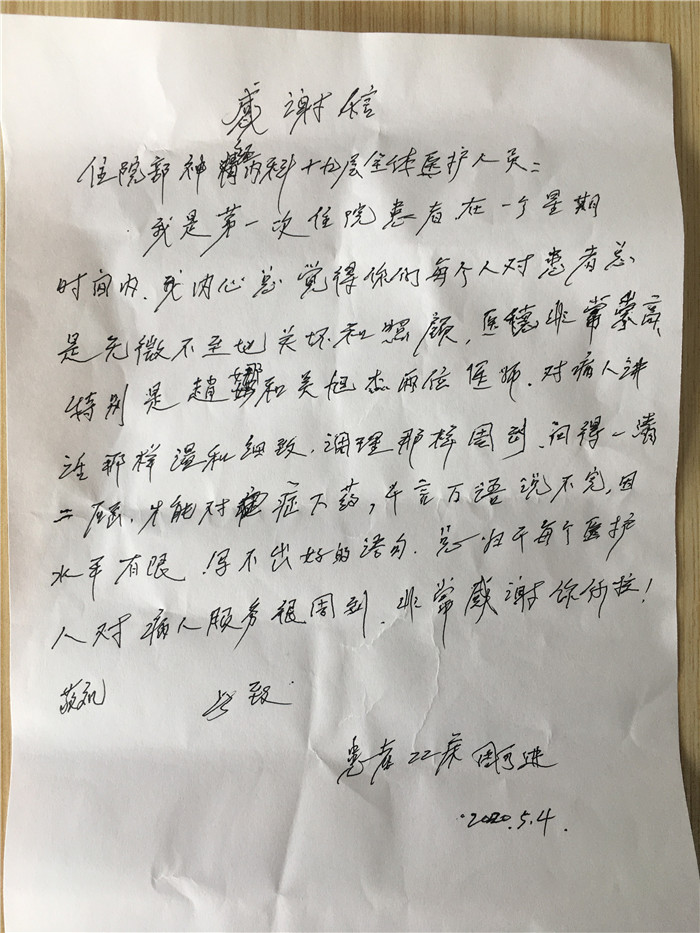 感谢信
住院部神内科十九层全体医护人员：
我是第一次住院患者.在一个星期
时间内.我内心总觉得你们每个人对患者总
是无微不至地关怀和照顾，医德非常崇高,
特别是赵娜和吴旭杰两位医师.对病人讲
话那样温和细致.调理那样周到.问得一清
二层.才能对症下药，千言万语说不完,因
水平有限.写不出好的语句.总归于每个医护
人对病人服务很周到.非常感谢你们拉!
敬礼 此致
患者22床 周
2020.5.4.